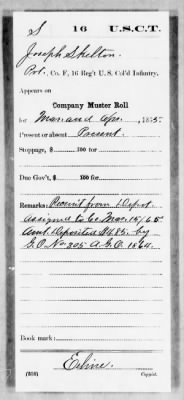 S 16 U.S.C.T.
Joseph Skelton
Pvt., Co. F, 16 Reg't U. S. Col'd Infantry.
Appears on
Company Muster Roll
for Mar. and Apr., 1865.
Present or absent Present
Stoppage, $ 100 for
Due Gov't, $ 100 for
Remarks: Recruit from Depot.
assigned to Co. Mar. 15/65
Amt. Deposited $485. by
G.O. No. 305 A.G.O. 1864.
Book mark:
(358) Copyist.